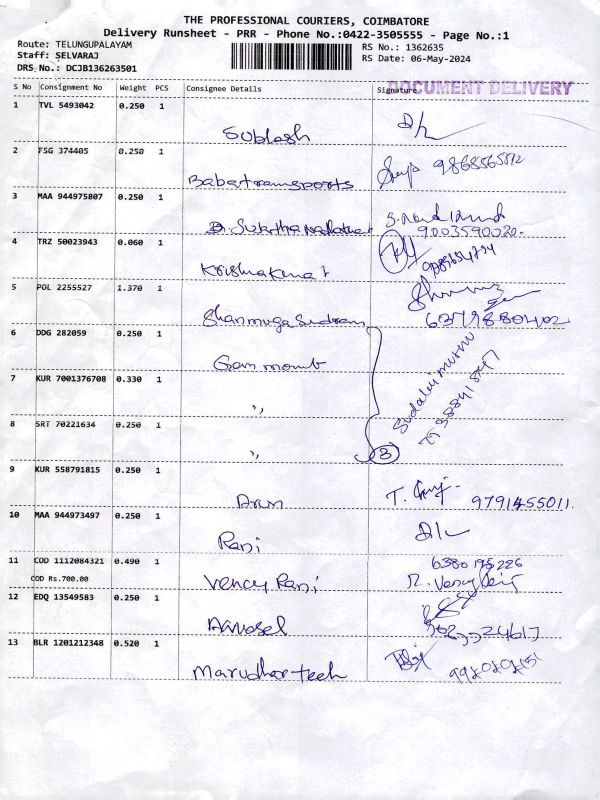 THE PROFESSIONAL COURIERS, COIMBATORE
Delivery Runsheet - PRR - Phone No.:0422-3505555 - Page No.:1
Route: TELUNGUPALAYAM
Staff: SELVARAJ
DRS No.: DCJB136263501
RS No.: 1362635
RS Date: 06-May-2024
S No Consignment No Weight PCS Consignee Details Signature
DOCUMENT DELIVERY
1 TVL 5493042 0.250 1
Subhash
2 FSG 374405 0.250 1
Babatransports 9868565512
3 MAA 944975807 0.250 1
9003590020
4 TRZ 50023943 0.060 1
Krishnakumar
5 POL 2255527 1.370 1
Shanmuga Sundram 6379880402
6 DDG 282059 0.250 1
7 KUR 7001376708 0.330 1
"
Sudalaimuthu
8 SRT 70221634 0.250 1
" 3
9 KUR 558791815 0.250 1
Arun T. 9791455011
10 MAA 944973497 0.250 1
Rani
11 COD 1112084321 0.490 1 6380195226
COD Rs.700.00
Vency Rani
12 EDQ 13549583 0.250 1
13 BLR 1201212348 0.520 1
Marudhar tech